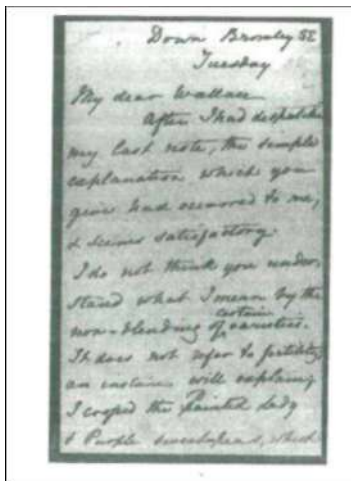 Down Bromley SE
Tuesday
My dear Wallace
After I had despatched
my last note, the simple
explanation which you
give had occurred to me,
& seems satisfactory.
I do not think you under-
stand what I mean by the
certain
non-blending of varieties.
It does not refer to fertility;
an instance will explain;
I crossed the Painted Lady
& Purple sweetpeas, which